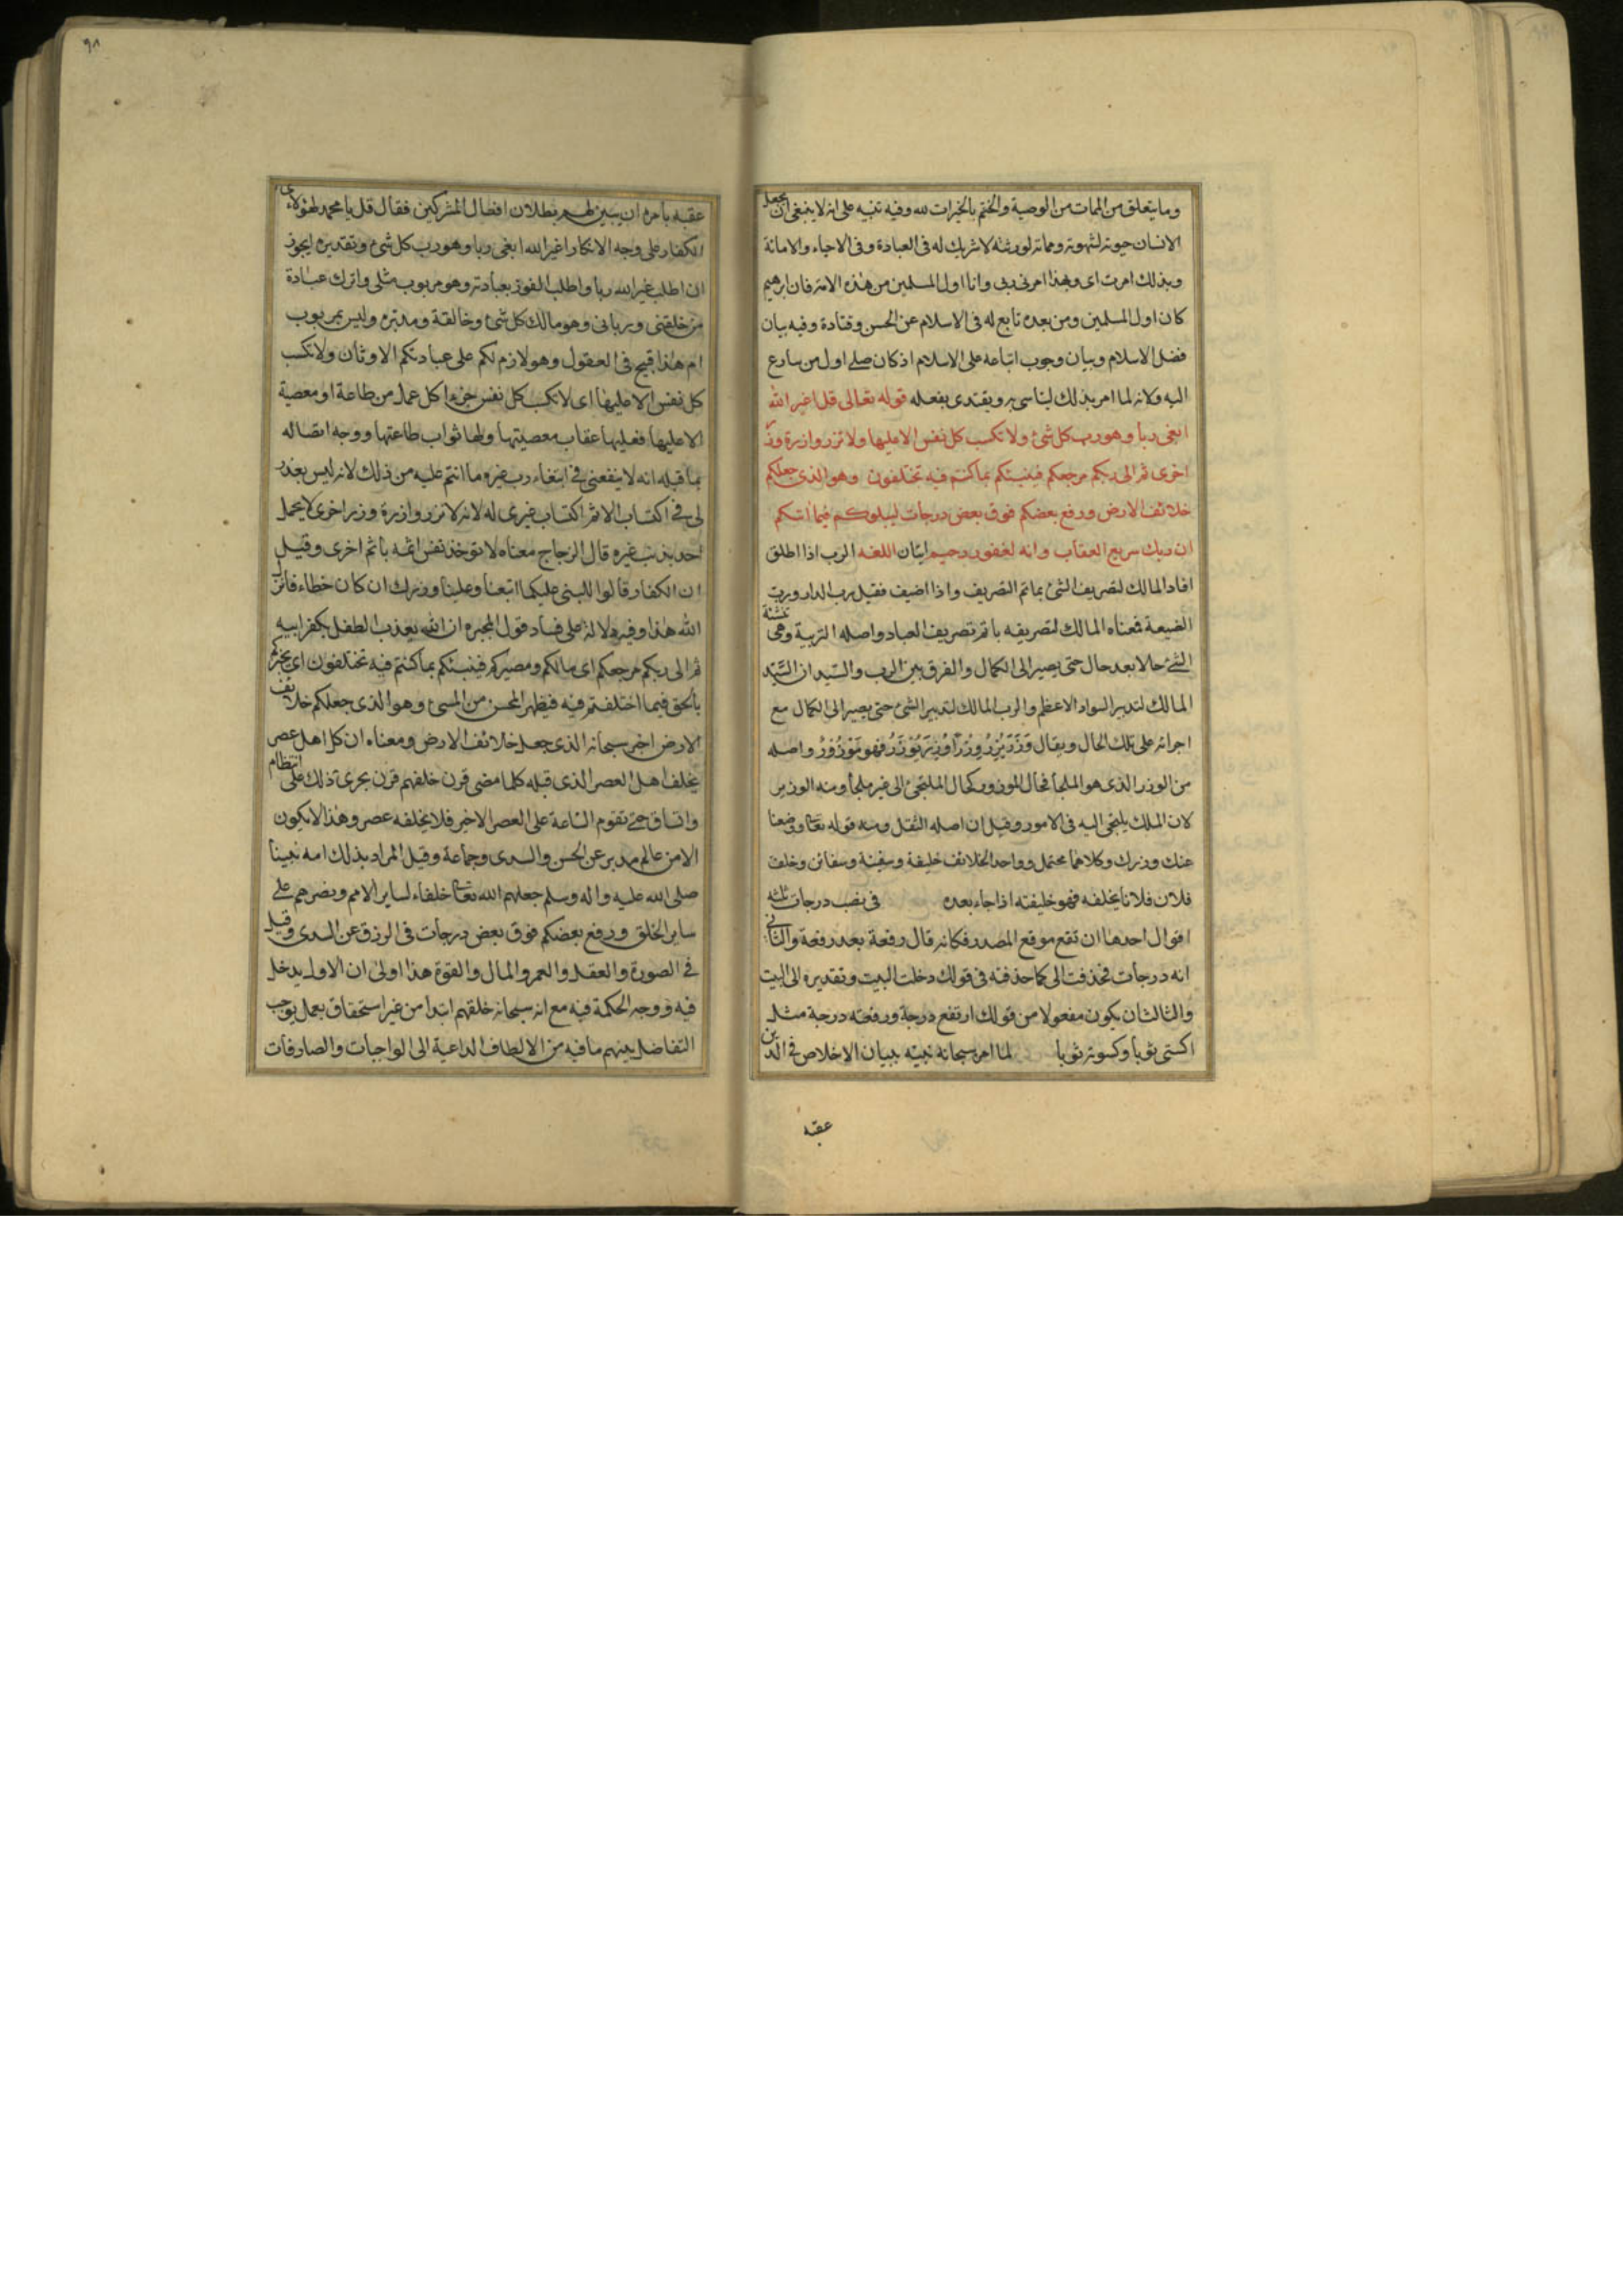 وما يتعلق من الممات من الوصية والختم بالخيرات لله وفيه تنبيه على انه لا ينبغى ان يجعل
الانسان حيوته لشهوته ومماته لورثته لا شريك له فى العبادة وفى الاحياء والاماتة
وبذلك امرت اى وبهذا امرنى ربى وانا اول المسلمين من هذه الامة فان ابرهيم
كان اول المسلمين ومن بعده تابع له فى الاسلام عن الحسن وقتادة وفيه بيان
فضل الاسلام وبيان وجوب اتباعه على الاسلام اذ كان صلى اول من سارع
اليه ولانه لما امر بذلك ليتاسى به ويقتدى بفعله قوله تعالى قل اغير الله
ابغى ربا وهو رب كل شئ ولا تكسب كل نفس الا عليها ولا تزر وازرة وزر
اخرى ثم الى ربكم مرجعكم فينبئكم بما كنتم فيه تختلفون وهو الذى جعلكم
خلائف الارض ورفع بعضكم فوق بعض درجات ليبلوكم فيما اتيكم
ان ربك سريع العقاب وانه لغفور رحيم ايتان اللغه الرب اذا اطلق
افاد المالك لتصريف الشئ باتم التصريف واذا اضيف فقيل رب الدار ورب
الضيعة فمعناه المالك لتصريفه باتم تصريف العباد واصله التربية وهى تنشئة
الشئ حالا بعد حال حتى يصير الى الكمال والفرق بين الرب والسيد ان السيد
المالك لتدبير السواد الاعظم والرب المالك لتدبير الشئ حتى يصير الى الكمال مع
اجرائه على تلك الحال ويقال وزر يزر وزرا ووزر يوزر فهو موزور واصله
من الوزر الذى هو الملجأ فحال الموزور كحال الملتجئ الى غير ملجأ ومنه الوزير
لان الملك يلتجى اليه فى الامور وقيل ان اصله الثقل ومنه قوله تعا ووضعنا
عنك وزرك وكلاهما محتمل وواحد الخلائف خليفة وسفينة وسفائن وخلف
فلان فلانا يخلفه فهو خليفته اذا جاء بعده فى نصب درجات ثلثه
اقوال احدها ان تقع موقع المصدر فكانه قال رفعة بعد رفعة والثانى
انه درجات فحذفت الى كما حذفته فى قولك دخلت البيت وتقديره الى البيت
والثالث ان يكون مفعولا من قولك ارتفع درجة ورفعته درجة مثل
اكتسى ثوبا وكسوته ثوبا لما امر سبحانه نبيه ببيان الاخلاص فى الدين
عقبه
٩٨
عقبه بامره ان يبين لهم بطلان افعال المشركين فقال قل يا محمد لهؤلاء
الكفار على وجه الانكار اغير الله ابغى ربا وهو رب كل شئ وتقديره ايجوز
ان اطلب غير الله ربا واطلب الفوز بعبادته وهو مربوب مثلى واترك عبادة
من خلقنى وربانى وهو مالك كل شئ وخالقه ومدبره وليس بمربوب
ام هذا قبيح فى العقول وهو لازم لكم على عبادتكم الاوثان ولا تكسب
كل نفس الا عليها اى لا تكسب كل نفس جزء كل عمل من طاعة او معصية
الا عليها فعليها عقاب معصيتها ولها ثواب طاعتها ووجه اتصاله
بما قبله انه لا ينفعنى فى ابتغاء رب غيره ما انتم عليه من ذلك لانه ليس بعذر
لى فى اكتساب الاثم اكتساب غيرى له لانه لا تزر وازرة وزر اخرى لا يحمل
احد بذنب غيره قال الزجاج معناه لا تؤخذ نفس اثمه باثم اخرى وقيل
ان الكفار قالوا للنبى عليكما اتبعنا وعلينا وزرك ان كان خطاء فانزل
الله هذا وفيه دلالة على فساد قول المجبره ان الله يعذب الطفل بكفر ابيه
ثم الى ربكم مرجعكم اى مالكم ومصيركم فينبئكم بما كنتم فيه تختلفون اى يخبركم
بالحق فيما اختلفتم فيه فيظهر المحسن من المسئ وهو الذى جعلكم خلائف
الارض اخبر سبحانه الذى جعل خلائف الارض ومعناه ان كل اهل عصر
يخلف اهل العصر الذى قبله كلما مضى قرن خلفهم قرن يجرى ذلك على انتظام
واتساق حتى تقوم الساعة على العصر الاخير فلا يخلفه عصر وهذا لا يكون
الا من عالم مدبر عن الحسن والسدى وجماعة وقيل المراد بذلك امه نبينا
صلى الله عليه واله وسلم جعلهم الله تعا خلفاء لساير الامم ونصرهم على
ساير الخلق ورفع بعضكم فوق بعض درجات فى الرزق عن السدى وقيل
فى الصورة والعقل والعمر والمال والقوة هذا اولى ان الاول يدخل
فيه ووجه الحكمة فيه مع انه سبحانه خلقهم ابتداء من غير استحقاق بعمل يوجب
التفاضل بينهم ما فيه من الالطاف الداعية الى الواجبات والصارفات